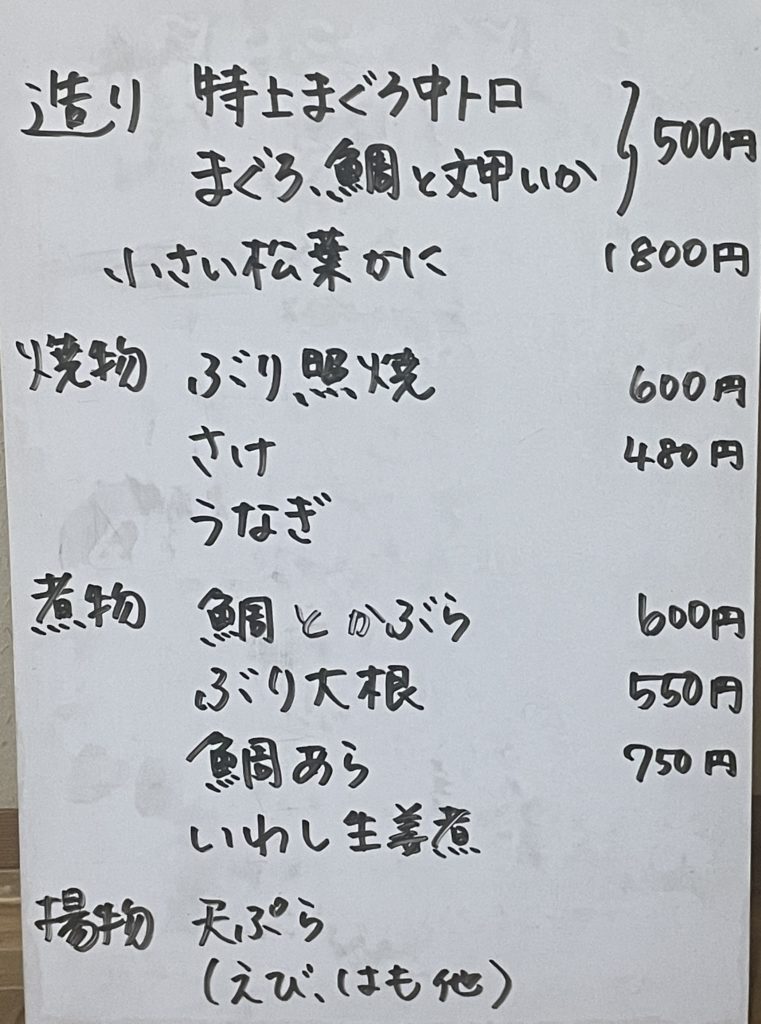 造り 特上まぐろ中トロ
まぐろ、鯛と文甲いか 500円
小さい松葉かに 1800円
焼物 ぶり照焼 600円
さけ 480円
うなぎ
煮物 鯛とかぶら 600円
ぶり大根 550円
鯛あら 750円
いわし生姜煮
揚物 天ぷら
(えび、はも他)